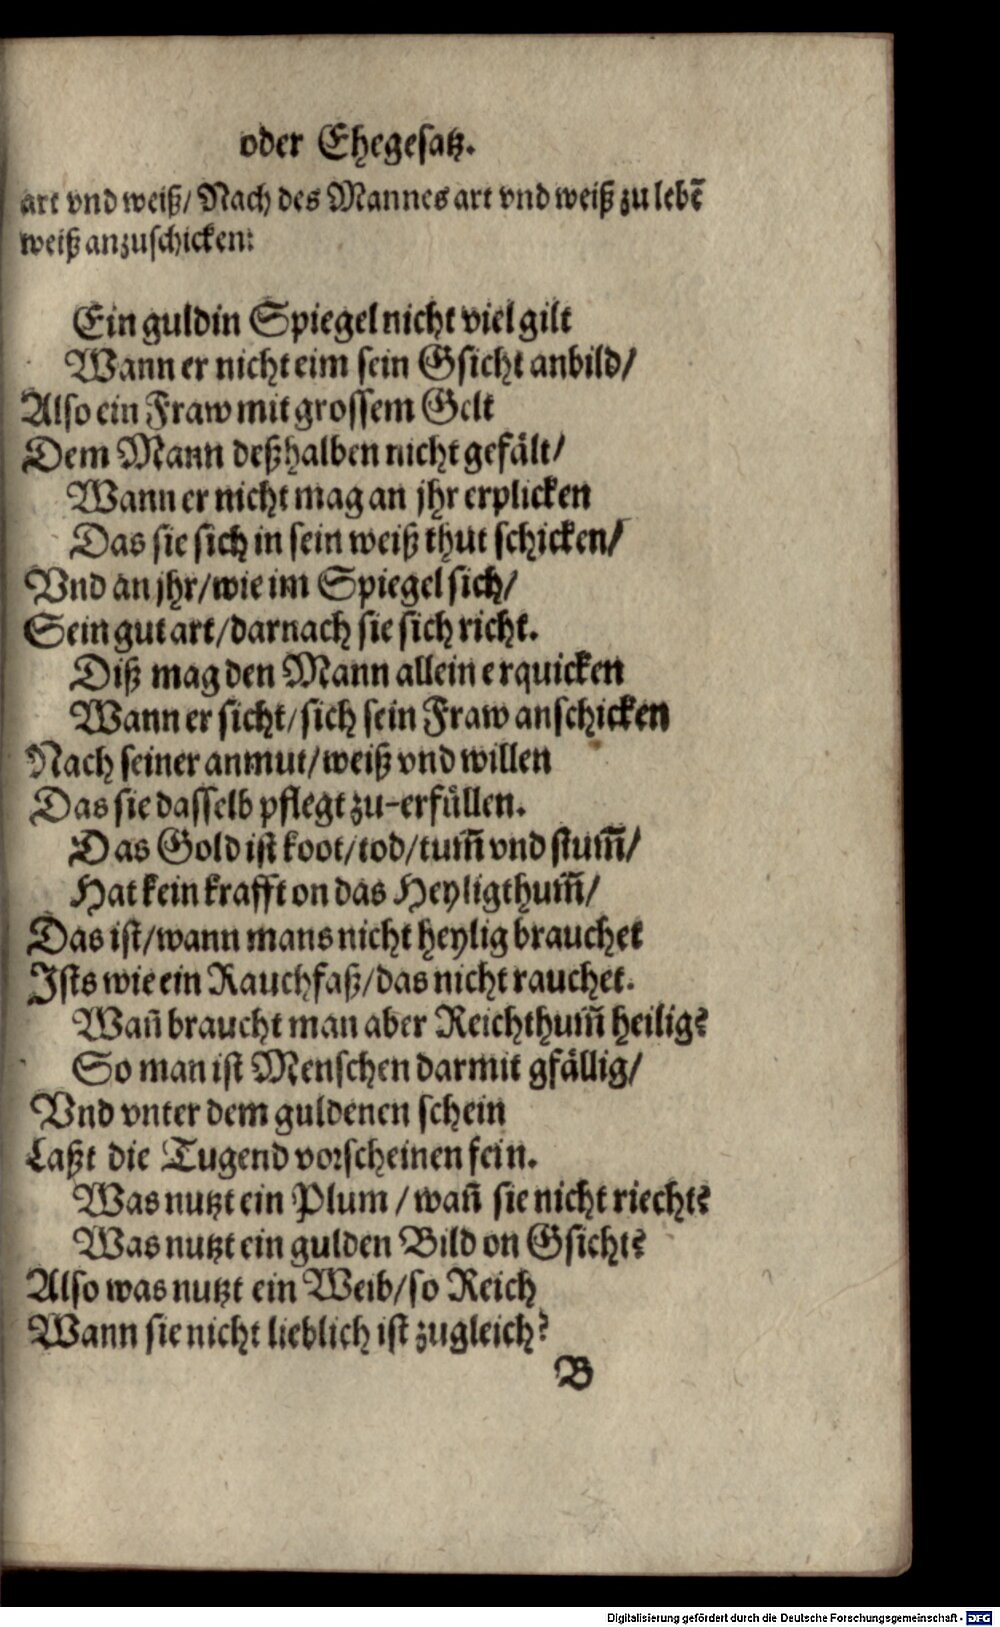 oder Ehegesatz.
art vnd weiß/ Nach des Mannes art vnd weiß zu lebē
weiß anzuschicken:
Ein guldin Spiegel nicht viel gilt
Wann er nicht eim sein Gsicht anbild/
Also ein Fraw mit grossem Gelt
Dem Mann deßhalben nicht gefält/
Wann er nicht mag an jhr erplicken
Das sie sich in sein weiß thut schicken/
Vnd an jhr/ wie im Spiegel sich/
Sein gut art/ darnach sie sich richt.
Diß mag den Mann allein erquicken
Wann er sicht/ sich sein Fraw anschicken
Nach seiner anmut/ weiß vnd willen
Das sie dasselb pflegt zu-erfüllen.
Das Gold ist koot/ tod/ tum̄ vnd stum̄/
Hat kein krafft on das Heyligthum̄/
Das ist/ wann mans nicht heylig brauchet
Ists wie ein Rauchfaß/ das nicht rauchet.
Wañ braucht man aber Reichthum̄ heilig?
So man ist Menschen darmit gfällig/
Vnd vnter dem guldenen schein
Laßt die Tugend vorscheinen fein.
Was nutzt ein Plum / wañ sie nicht riecht?
Was nutzt ein gulden Bild on Gsicht?
Also was nutzt ein Weib/ so Reich
Wann sie nicht lieblich ist zugleich?
B
Digitalisierung gefördert durch die Deutsche Forschungsgemeinschaft - DFG